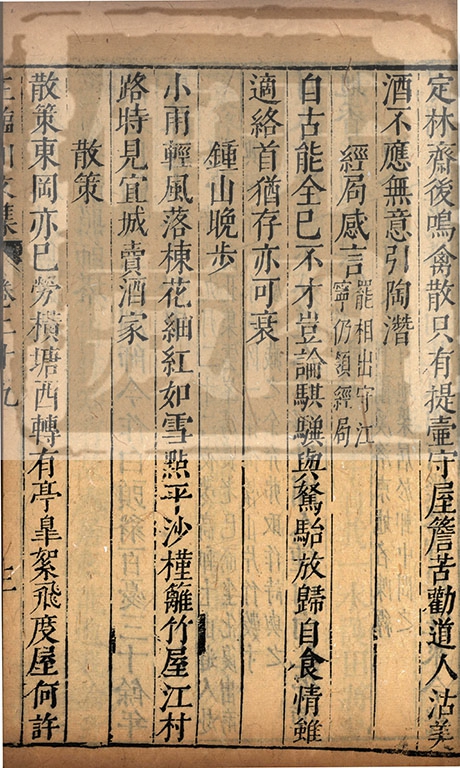 定林齋後鳴禽散只有提壺守屋簷苦勸道人沽美
酒不應無意引陶潛
經局感言
罷相出守江
寧仍領經局
自古能全已不才豈論騏驥與駑駘放歸自食情雖
適絡首猶存亦可哀
鍾山晚步
小雨輕風落楝花細紅如雪點平沙槿籬竹屋江村
路時見宜城賣酒家
散策
散策東岡亦已勞橫塘西轉有亭臯絮飛度屋何許
王臨川文集 卷二十九 三